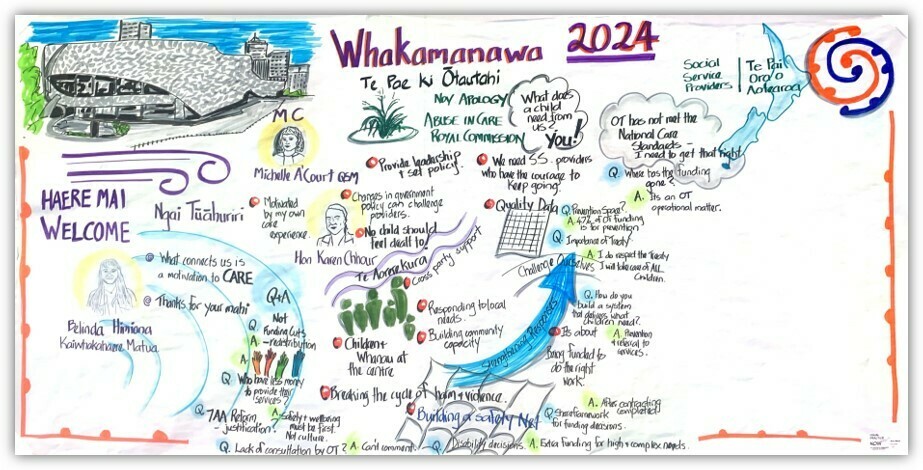 Whakamanawa 2024
Te Pae Ki Ōtautahi
Nov Apology
Abuse in Care
Royal Commission
What does
a child
need from
us &
You!
Social
Service
Providers
Te Pai
Oro o
Aotearoa
OT has not met the
National Care
Standards -
I need to get that right
MC
Michelle A'Court QSM
HAERE MAI
WELCOME
Ngai Tūāhuriri
Motivated
by my own
care
experience.
Hon Karen Chhour
Provide leadership
+ set policy.
Changes in government
policy can challenge
providers.
No child should
feel dealt to!
We need SS. providers
who have the courage to
keep going.
Quality Data
Q. Where has the funding
gone?
A. Its an OT
operational matter.
Q. Prevention Space?
A. 47% of OT funding
is for prevention
Q. Importance of Treaty
A. I do respect the Treaty
I will take care of ALL
Children.
Challenge Ourselves
Te Aorerekura
Cross party support
@ What connects us is
a motivation to CARE
@ Thanks for your mahi
Belinda Himiona
Kaiwhakahaere Matua
Q+A
Not
Funding Cuts
A. - redistribution
A.
Q. Who have less money
to provide their
services
Q. 7AA Reform
- justification?
A. Safety + wellbeing
must be first.
Not culture.
Q. Lack of consultation by OT? A. Can't comment.
Responding to local
needs.
Building community
capacity
Children +
Whanau at
the centre
Breaking the cycle of harm + violence.
Strengthening Responses
Building a safety Net
Q. How do you
build a system
that delivers what
children need?
A. Prevention
+ referral to
services.
Its about
being funded to
do the right
work.
Q. Share framework
for funding decisions.
A. After contracting
completed
Q. Disability decisions. A. Extra funding for high + complex needs.